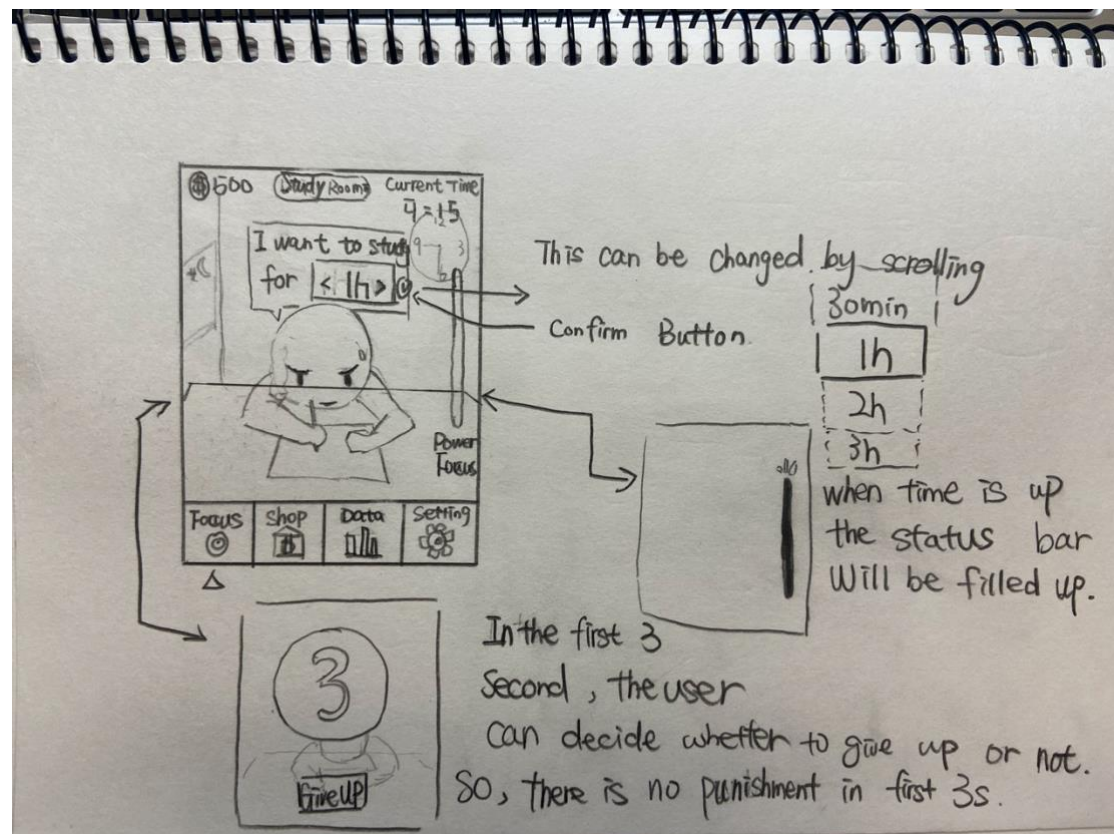 500 Study Room Current Time
4:15
12
9 3
6
I want to study
for < 1h >
Power
Focus
Focus Shop Data Setting
This can be changed by scrolling
Confirm Button
30min
1h
2h
3h
when time is up
the status bar
will be filled up.
3
Give UP
In the first 3
Second, the user
can decide whetter to give up or not.
So, there is no punishment in first 3s.